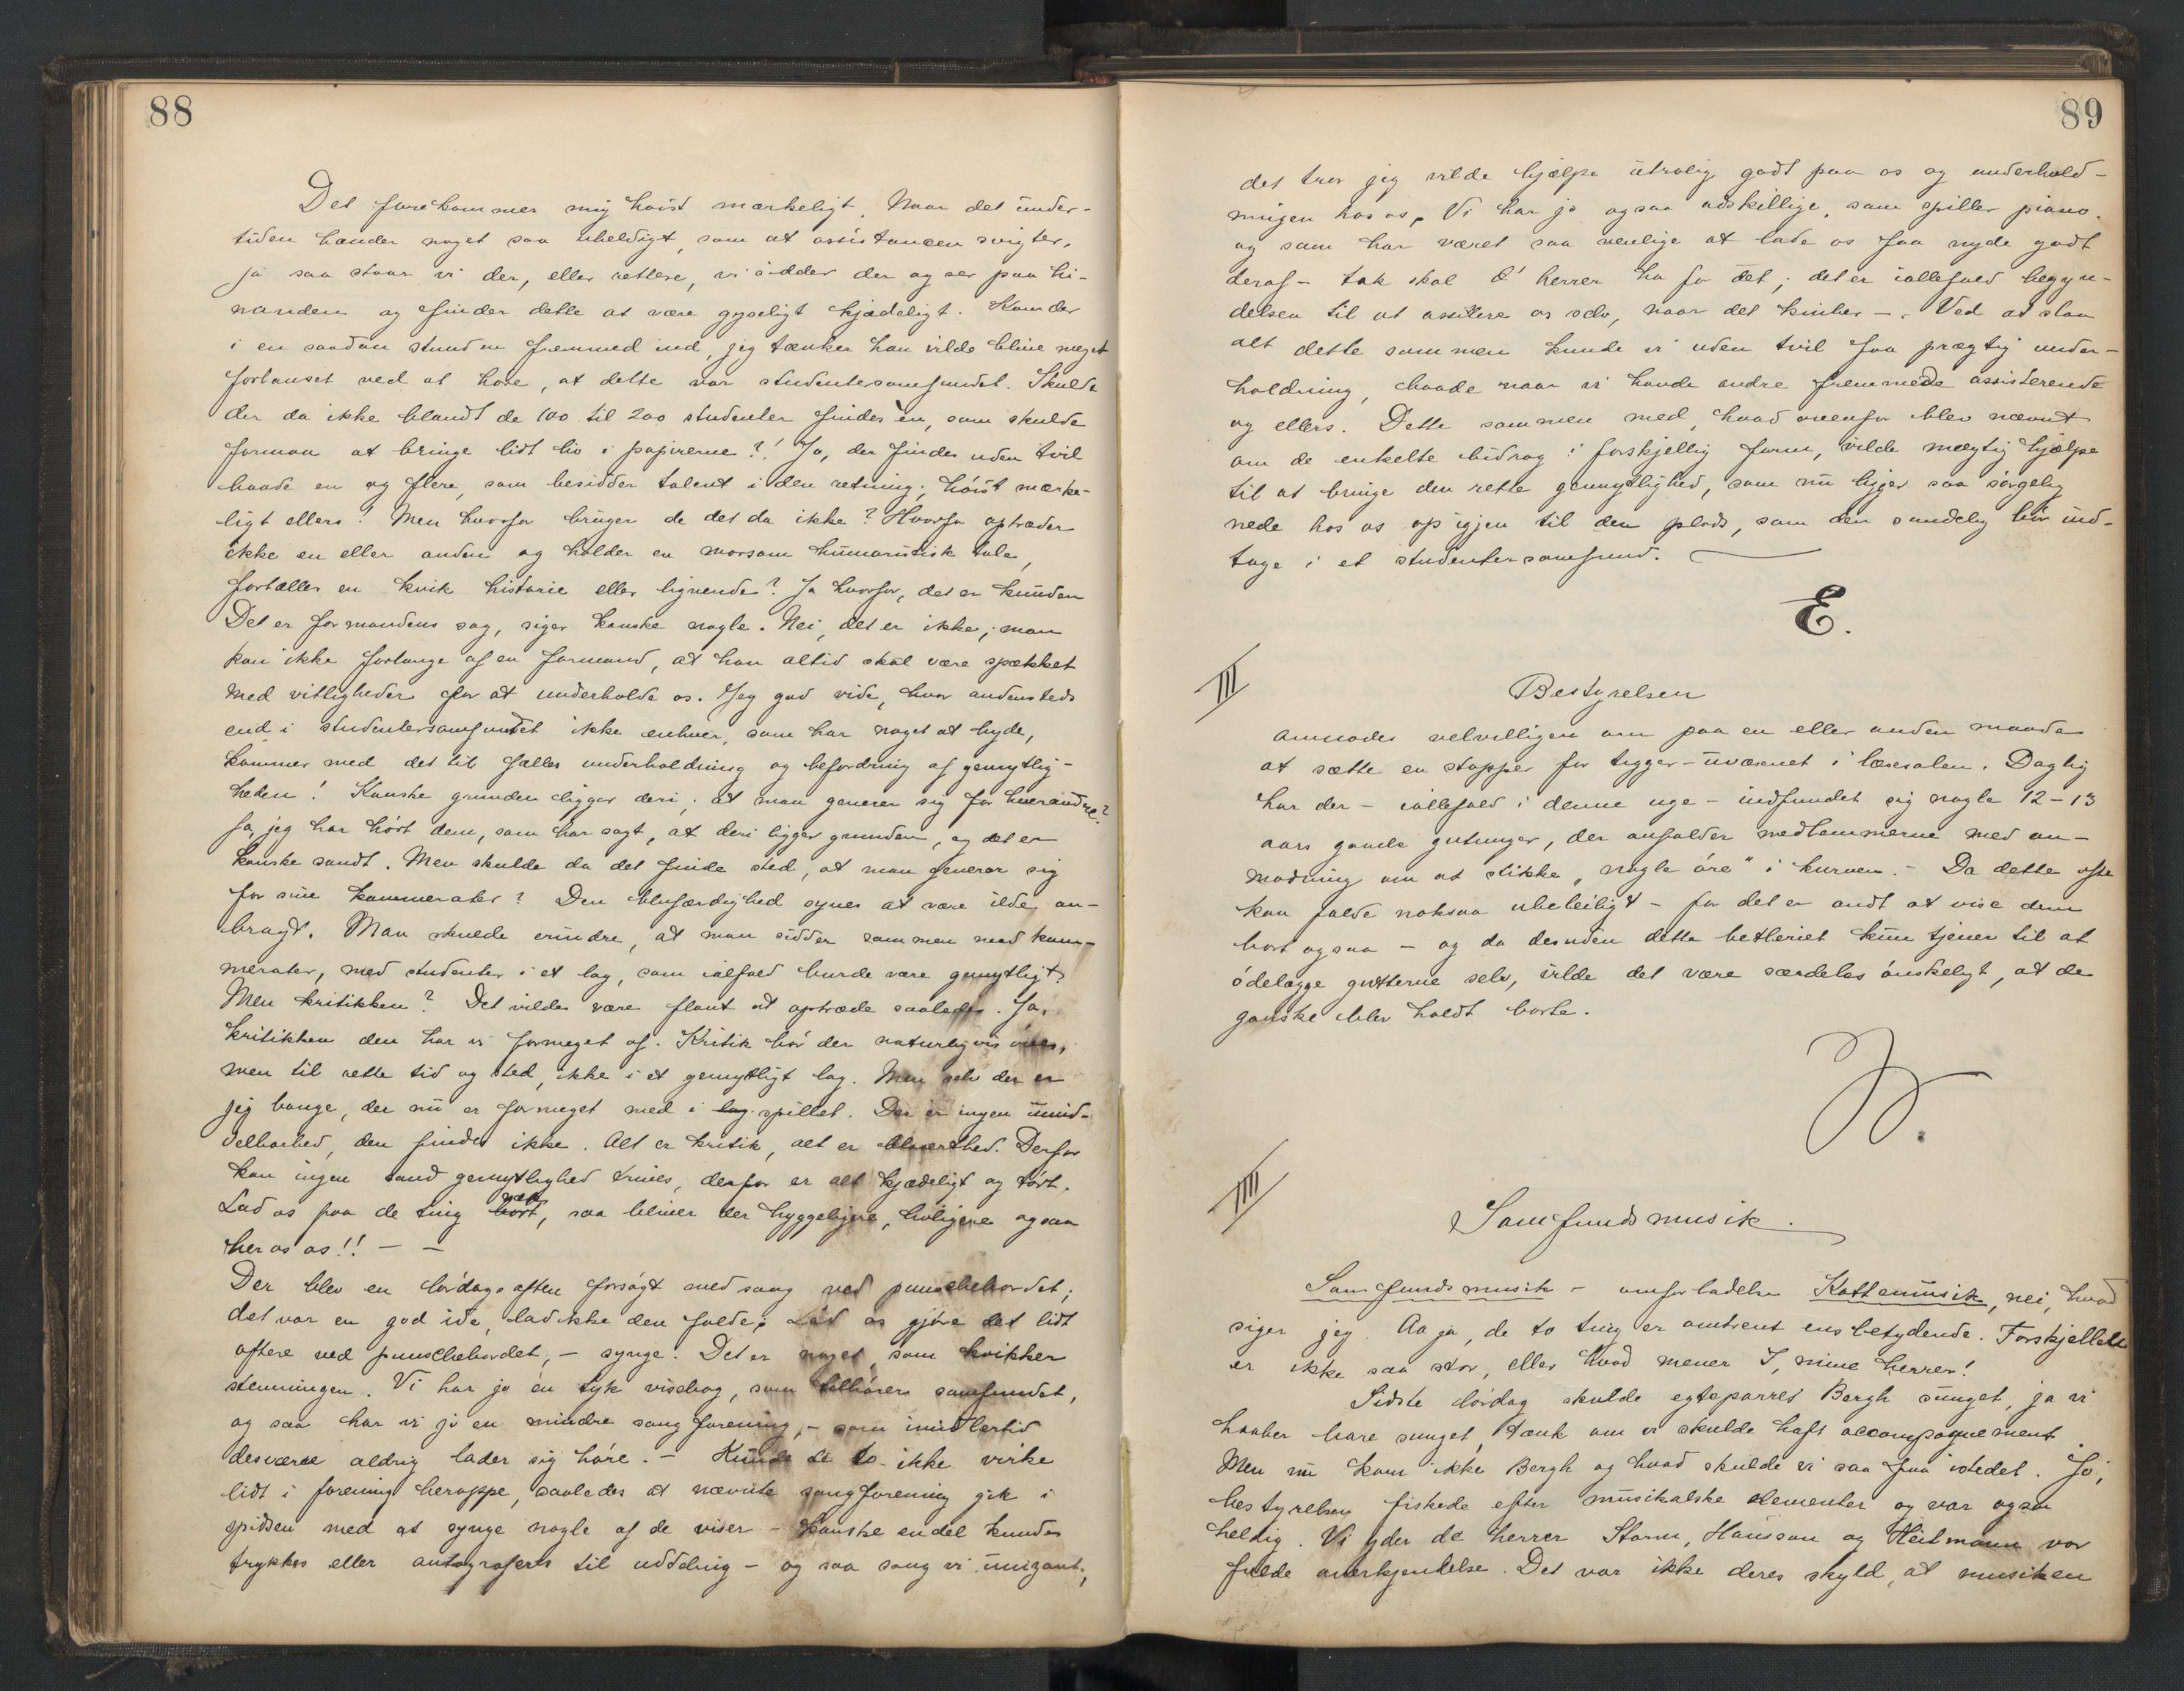 88
Det forekommer mig høist mærkeligt. Naar det under-
tiden hænder noget saa uheldigt, som at assistancen svigter,
ja saa staar vi der, eller rettere, vi sidder der og ser paa hi-
nanden og finder dette at være gyseligt kjædeligt. Kom der
i en saadan stund en fremmed ind, jeg tænker han vilde blive meget
forbauset ved at høre, at dette var studentersamfundet. Skulde
der da ikke blandt de 100 til 200 studenter findes én, som skulde
formaa at bringe lidt liv i papirerne?! Jo, der findes uden tvil
baade en og flere, som besidder talent i den retning; høist mærke-
ligt ellers! Men hvorfor bruger de det da ikke? Hvorfor optræder
ikke en eller anden og holder en morsom humoristisk tale,
fortæller en kvik historie eller lignende? Ja hvorfor, det er knuden
Det er formandens sag, siger kanske nogle. Nei, det er ikke; man
kan ikke forlange af en formand, at han altid skal være spækket
med vittigheder for at underholde os. Jeg gad vide, hvor andensteds
end i studentersamfundet ikke enhver, som har noget at byde,
kommer med det til fælles underholdning og befordring af gemytlig-
heden! Kanske grunden ligger deri, at man generer sig for hverandre?
Ja, jeg har hørt dem, som har sagt, at deri ligger grunden, og det er
kanske sandt. Men skulde da det finde sted, at man generer sig
for sine kammerater? Den blufærdighed synes at være ilde an-
bragt. Man skulde erindre, at man sidder sammen med kam-
merater, med studenter i et lag, som ialfald burde være gemytligt?
Men kritikken? Det vilde være flaut at optræde saaledes. Ja,
kritikken den har vi formeget af. Kritik bør der naturligvis øves,
men til rette tid og sted, ikke i et gemytligt lag. Men selv der er
jeg bange, der nu er formeget med i lag spillet. Der er ingen umid-
delbarhed, den findes ikke. Alt er kritik, alt er blaserthed. Derfor
kan ingen sand gemytlighed trives, derfor er alt kjædeligt og tørt.
Lad os faa de ting væk bort, saa bliver der hyggeligere, livligere ogsaa
her os os!! — —
Der blev en lørdagsaften forsøgt med sang ved punschebordet;
det var en god idé, lad ikke den falde; Lad os gjøre det lidt
oftere ved punschebordet, — synge. Det er noget, som kvikker
stemningen. Vi har jo én tyk visebog, som tilhører samfundet,
og saa har vi jo en mindre sangforening, — som imidlertid
desværre aldrig lader sig høre. — Kunde de to ikke virke
lidt i forening heroppe, saaledes at nævnte sangforening gik i
spidsen med at synge nogle af de viser — kanske endel kunde
trykkes eller autograferes til uddeling — og saa sang vi unizont,
89
det tror jeg vilde hjælpe utrolig godt paa os og underhold-
ningen hos os. Vi har jo ogsaa adskillige, som spiller piano.
og som har været saa venlige at lade os faa nyde godt
deraf — tak skal d' herrer ha for det; det er iallefald begyn-
delsen til at assistere os selv, naar det kniber —. Ved at slaa
alt dette sammen kunde vi uden tvil faa prægtig under-
holdning, baade naar vi havde andre fremmede assisterende
og ellers. Dette sammen med, hvad ovenfor blev nævnt
om de enkelte bidrag i forskjellig form, vilde mægtig hjælpe
til at bringe den rette gemytlighed, som nu ligger saa sørgelig
nede hos os op igjen til den plads, som den sandelig bør ind-
tage i et studentersamfund.
E.
III
Bestyrelsen
anmodes velvilligen om paa en eller anden maade
at sætte en stopper for tigger-uvæsenet i læsesalen. Daglig
har der — iallefald i denne uge — indfundet sig nogle 12-13
aars gamle gutunger, der anfalder medlemmerne med an-
modning om at stikke „nogle øre" i kurven. — Da dette ofte
kan falde noksaa ubeleiligt — for det er ondt at vise dem
bort ogsaa — og da desuden dette betleriet kun tjener til at
ødelægge gutterne selv, vilde det være særdeles ønskeligt, at de
ganske blev holdt borte.
IIII
Samfundsmusik.
Samfundsmusik — omforladelse Kattemusik, nei, hvad
siger jeg. Aa ja, de to ting er omtrent ensbetydende. Forskjellen
er ikke saa stor, eller hvad mener I, mine herrer!
Sidste lørdag skulde egteparret Bergh sunget, ja vi
haaber bare sunget, tænk om vi skulde haft accompagnement
Men nu kom ikke Bergh og hvad skulde vi saa faa istedet. Jo,
bestyrelsen fiskede efter musikalske elementer og var ogsaa
heldig. Vi yder de herrer Storm, Hansson og Heitmann vor
fulde anerkjendelse. Det var ikke deres skyld, at musiken